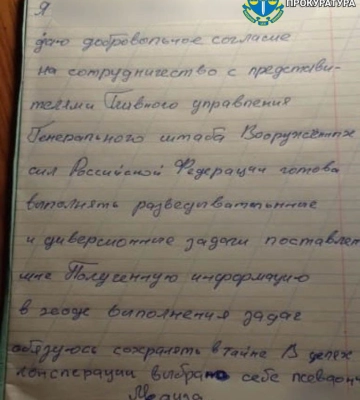 ПРОКУРАТУРА
Я
даю добровольное согласие
на сотрудничество с представи-
телями Главного управления
Генерального штаба Вооружённых
сил Российской Федерации готова
выполнять разведывательные
и диверсионные задачи поставлен
мне Полученную информацию
в ходе выполнения задач
обязуюсь сохранять в тайне В целях
конспирации выбрано себе псевдони